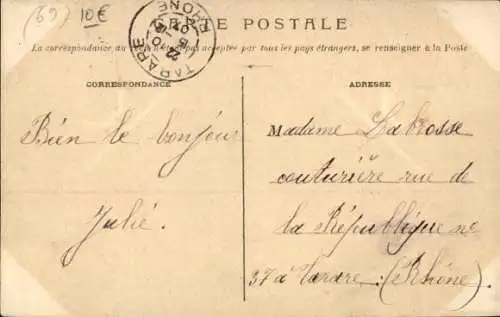 (69) 10€
TARARE RHONE
E POSTALE
La correspondance au pas acceptée par tous les pays étrangers, se renseigner à la Poste
CORRESPONDANCE
ADRESSE
Bien le bonjour
Julié.
Madame Labrosse
couturière rue de
la République no
37 à Tarare (Rhône)